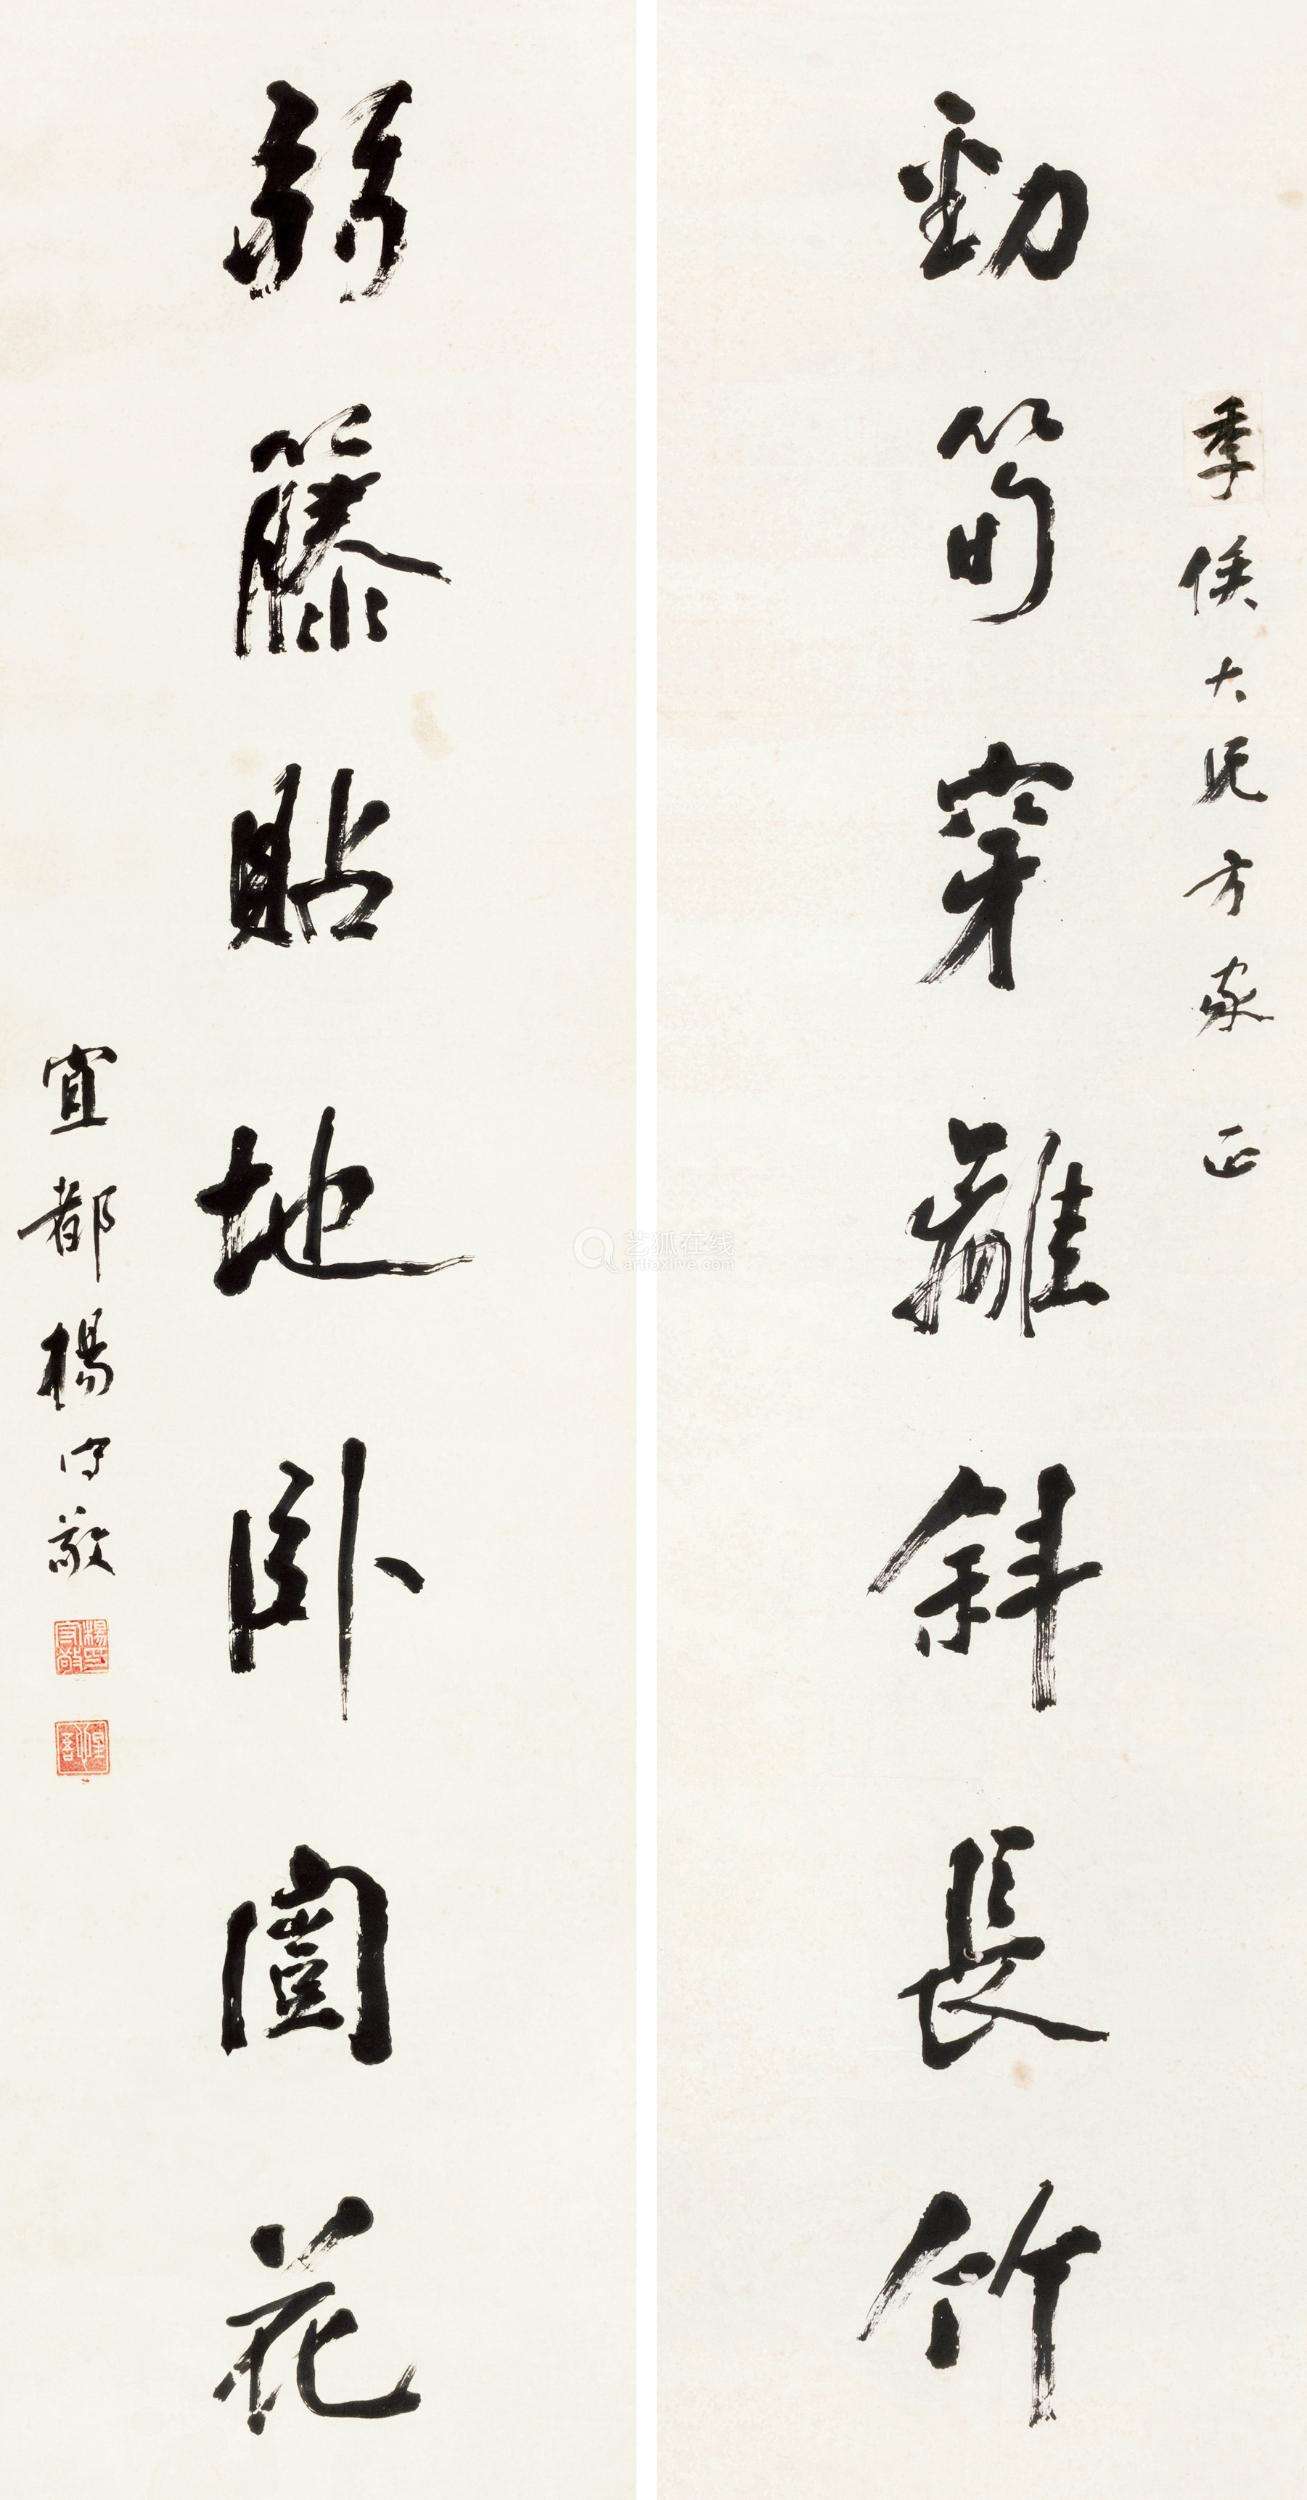 季侯大兄方家正
勁筍穿籬斜長竹
弱籐貼地臥闓花
宜都楊守敬
楊守敬印
惺吾
艺狐在线
artfoxlive.com